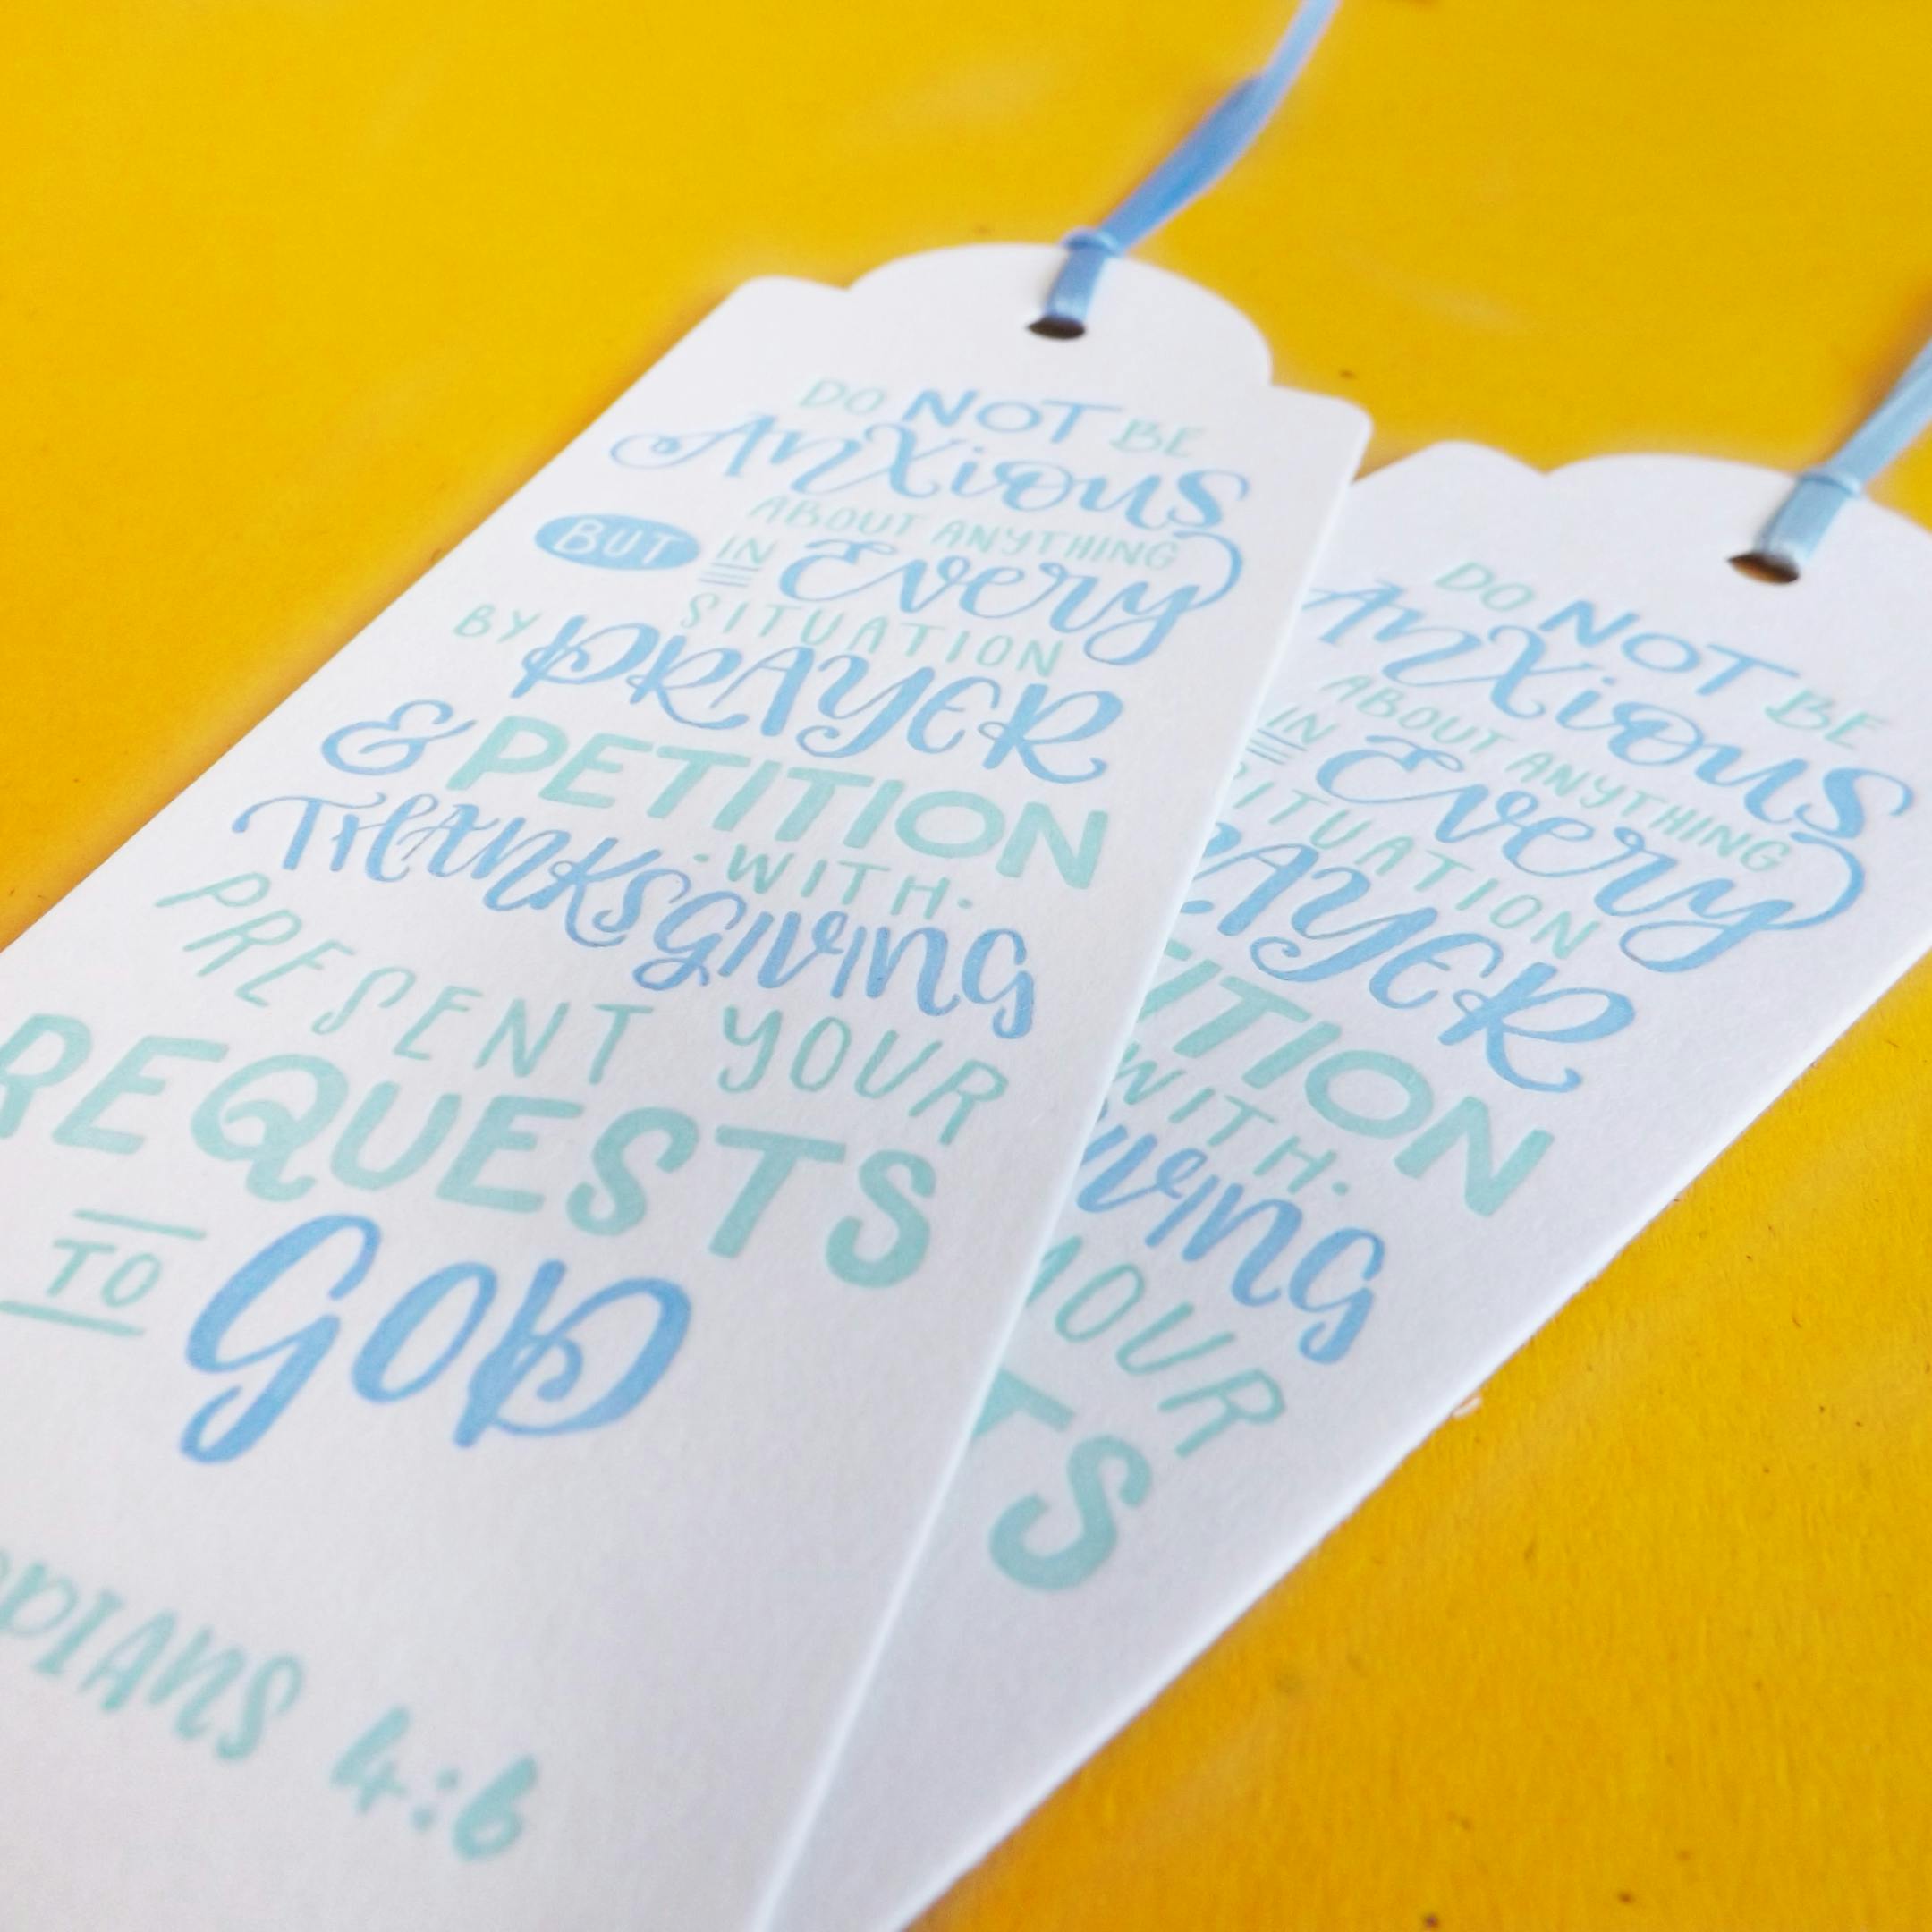 DO NOT BE
AnXious
ABOUT ANYTHING
BUT IN Every
SITUATION
BY PRAYER
& PETITION
·WITH·
THANKSGIVING
PRESENT YOUR
REQUESTS
TO GOD
4:6
DO NOT BE
AnXious
ABOUT ANYTHING
IN Every
SITUATION